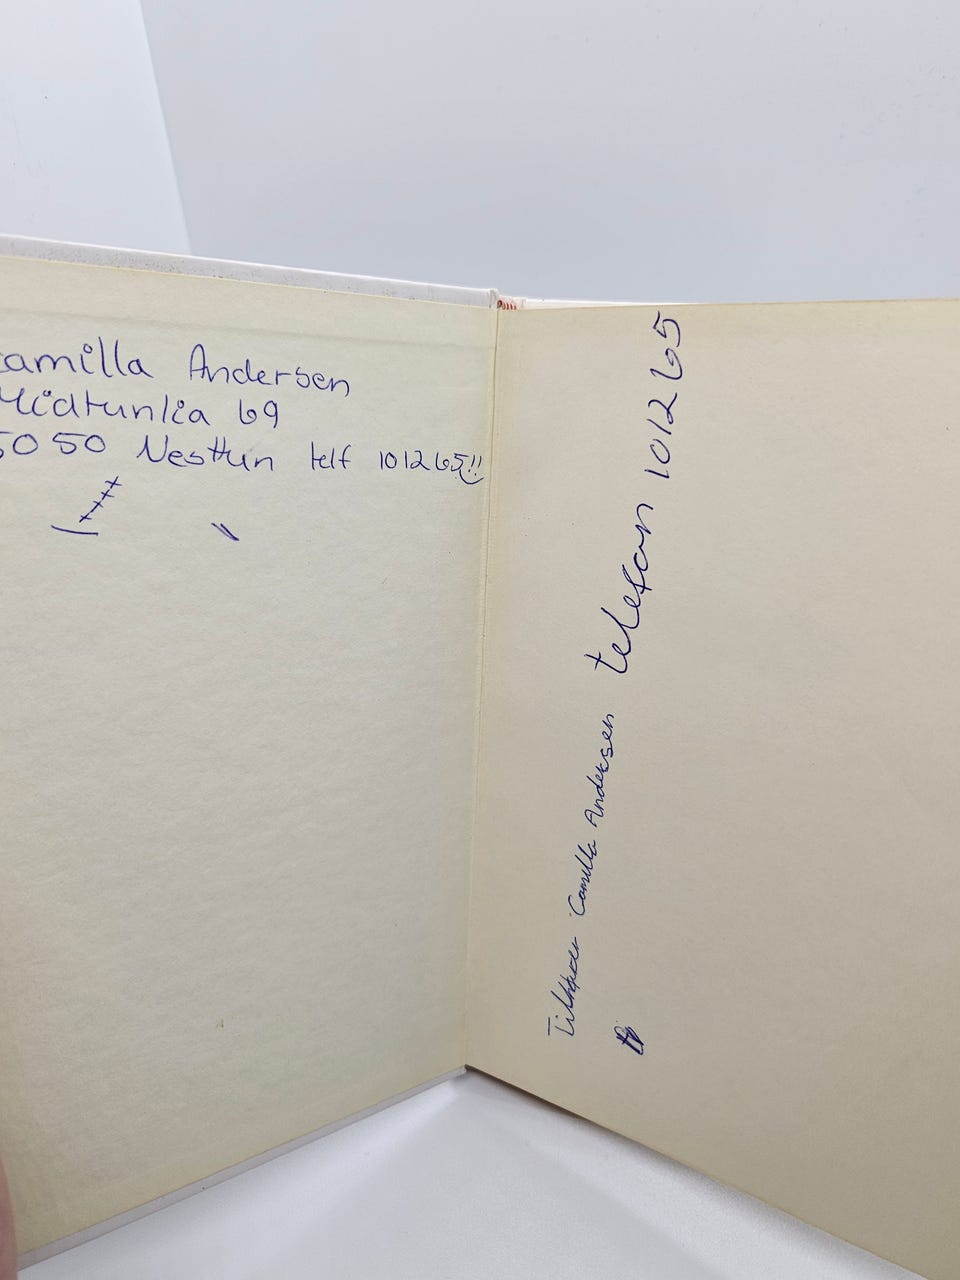 Camilla Andersen
Midtunlia 69
5050 Nesttun telf 101265!!
Tilhører Camilla Andersen telefon 101265